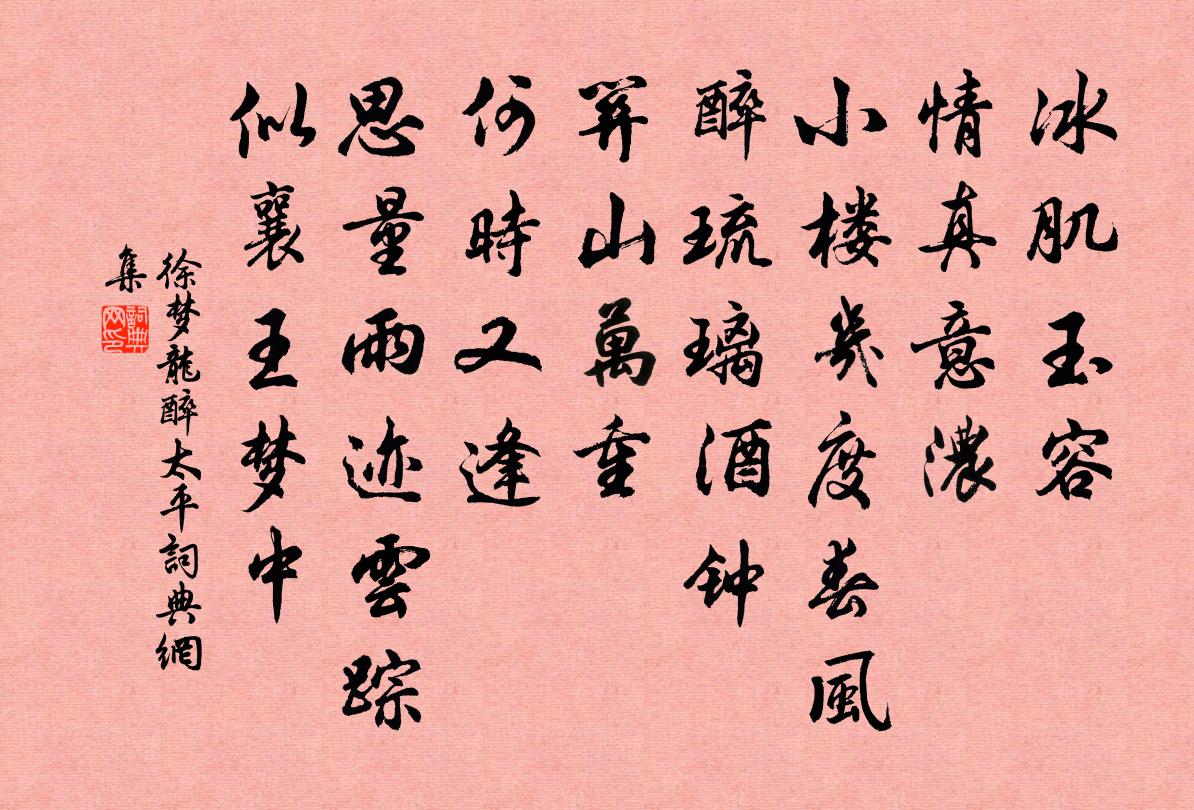 冰肌玉容
情真意濃
小楼幾度春風
醉琉璃酒钟
關山萬重
何時又逢
思量雨迹雲踪
似襄王梦中
徐梦龍醉太平詞典網
集
詞典
网印